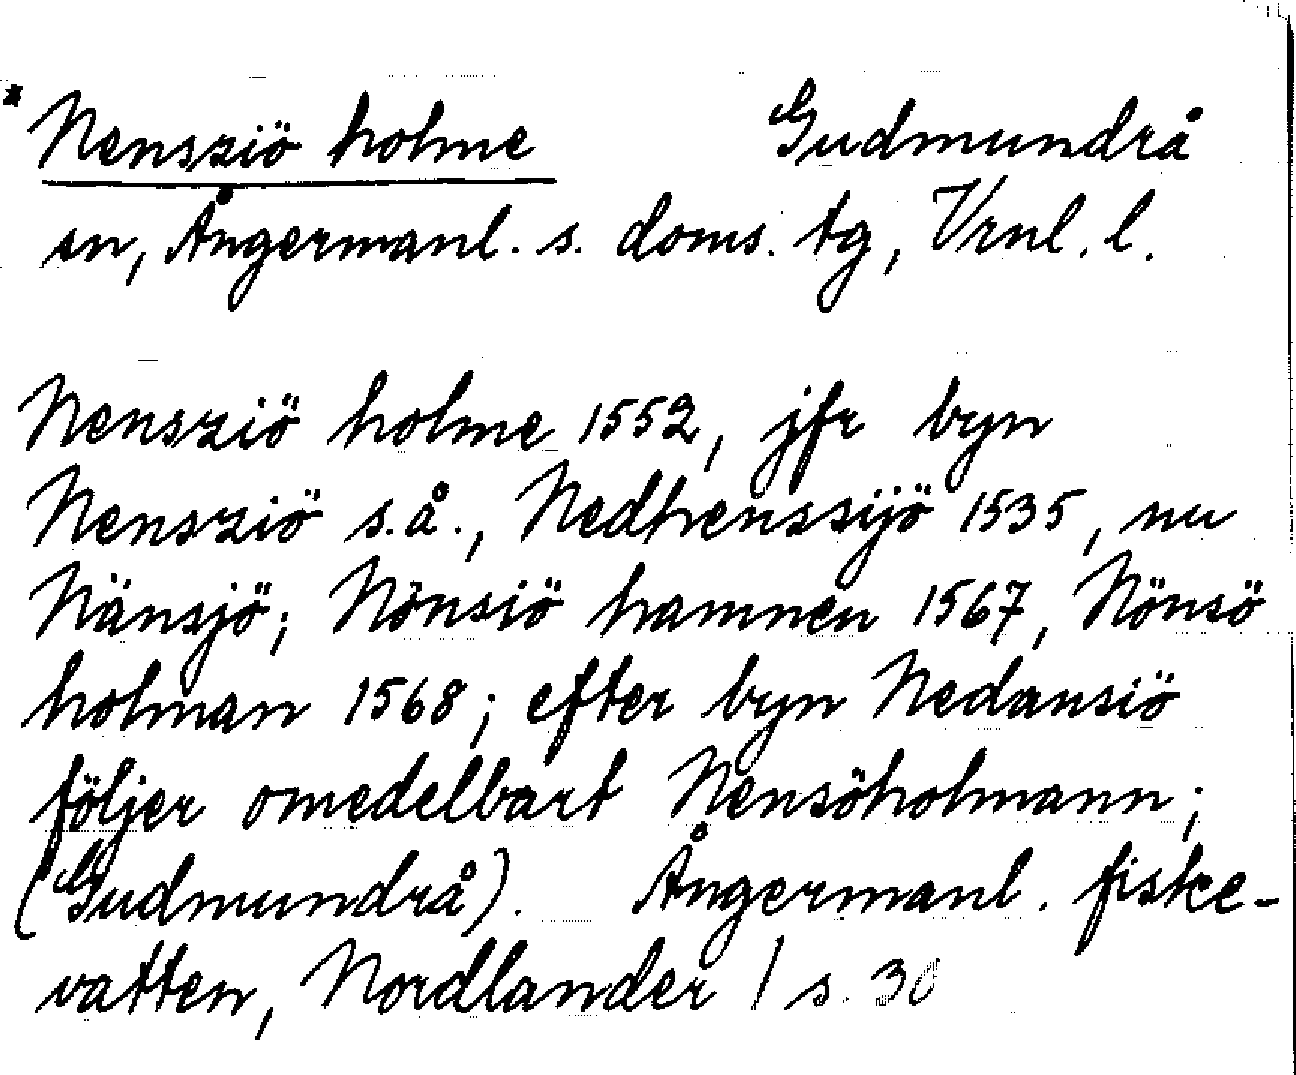 * Nensziö holme Gudmundrå
sn, Ångermanl. s. doms. tg, Vrnl. l.
Nensziö holme 1552, jfr byn
Nensziö s.å., Nedhenssijö 1535, nu
Nänsjö; Nönsiö hamnen 1567, Nönsö
holman 1568; efter byn Nedansiö
följer omedelbart Nensöholmann;
(Gudmundrå). Ångermanl. fiske-
vatten, Nordlander / s. 30